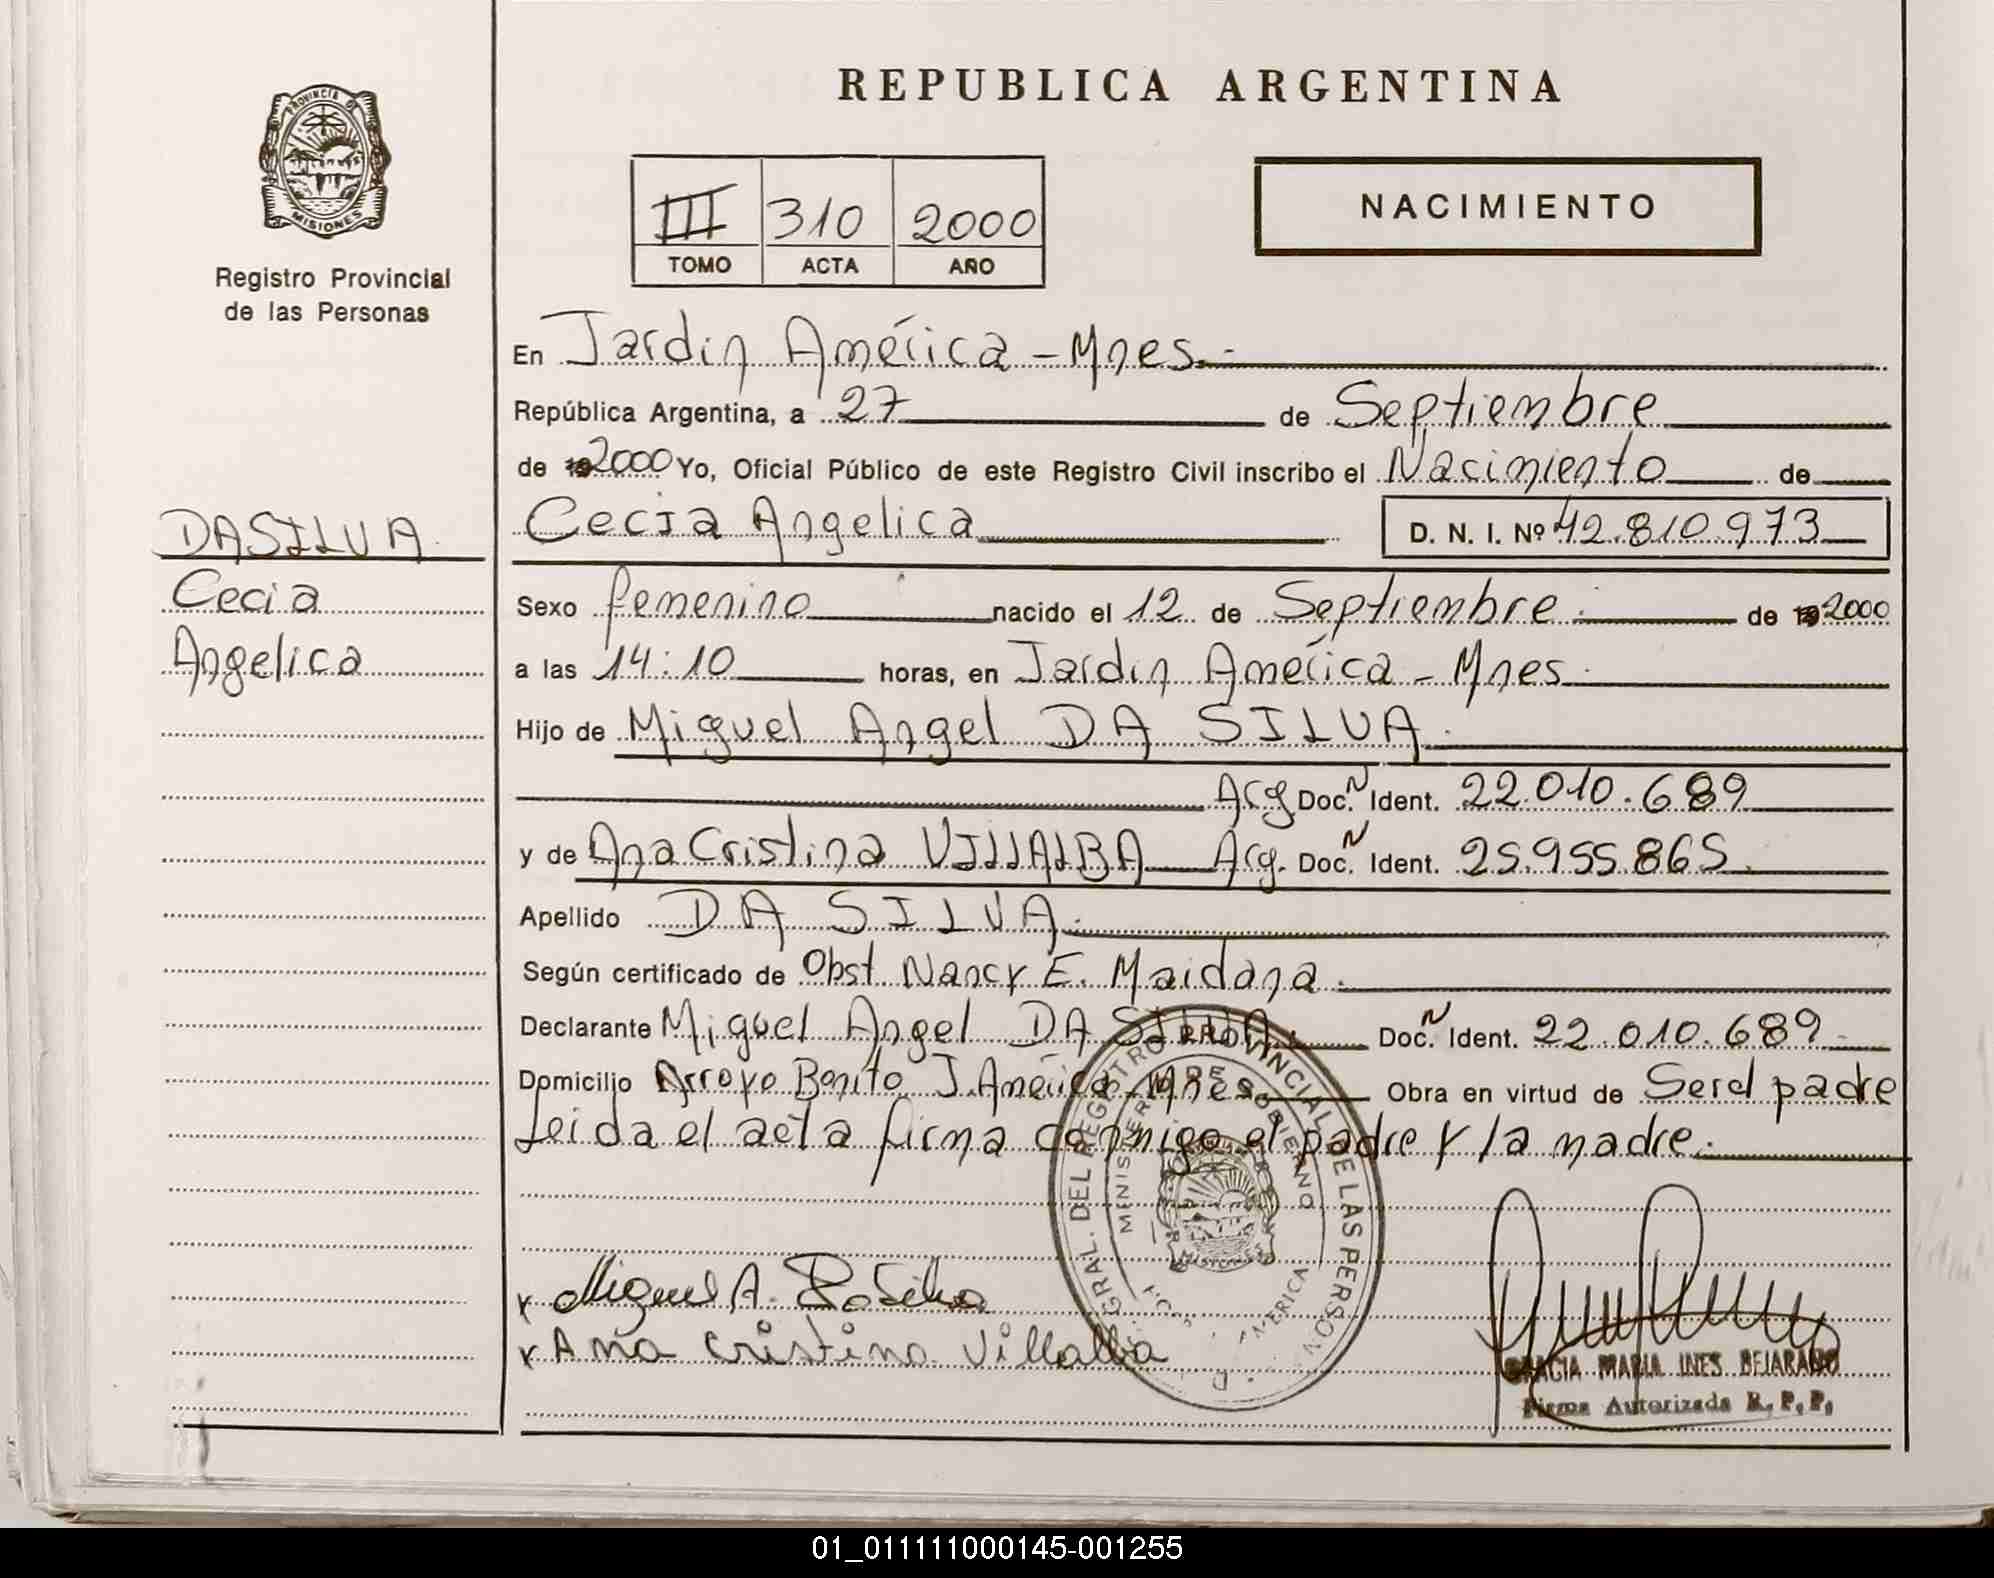 REPUBLICA ARGENTINA
PROVINCIA DE
MISIONES
Registro Provincial
de las Personas
III 310 2000
TOMO ACTA AÑO
NACIMIENTO
En Jardín América - Mnes.-
República Argentina, a 27 de Septiembre
de 2000 Yo, Oficial Público de este Registro Civil inscribo el Nacimiento de
DASILVA
Cecia Angelica D. N. I. Nº 42.810.973
Cecia
Angelica
Sexo femenino nacido el 12 de Septiembre.- de 19 2000
a las 14:10 horas, en Jardín América - Mnes.
Hijo de Miguel Angel DA SILVA.
Arg Doc. N Ident. 22.010.689
y de Ana Cristina VILLALBA Arg. Doc. N Ident. 25.955.865.
Apellido DA SILVA.
Según certificado de Obst. Nancy E. Maidana.
Declarante Miguel Angel DA SILVA. Doc. N Ident. 22.010.689
Domicilio Arroyo Bonito J. América - Mnes. Obra en virtud de Ser el padre
Leida el acta firma conmigo el padre y la madre.
GRAL. DEL REGISTRO PROVINCIAL DE LAS PERSONAS
MINISTERIO DE GOBIERNO
x Miguel A. Da Silva
x Ana Cristina Villalba
GRACIA MARIA INES BEJARANO
Firma Autorizada R. P. P.
01_011111000145-001255